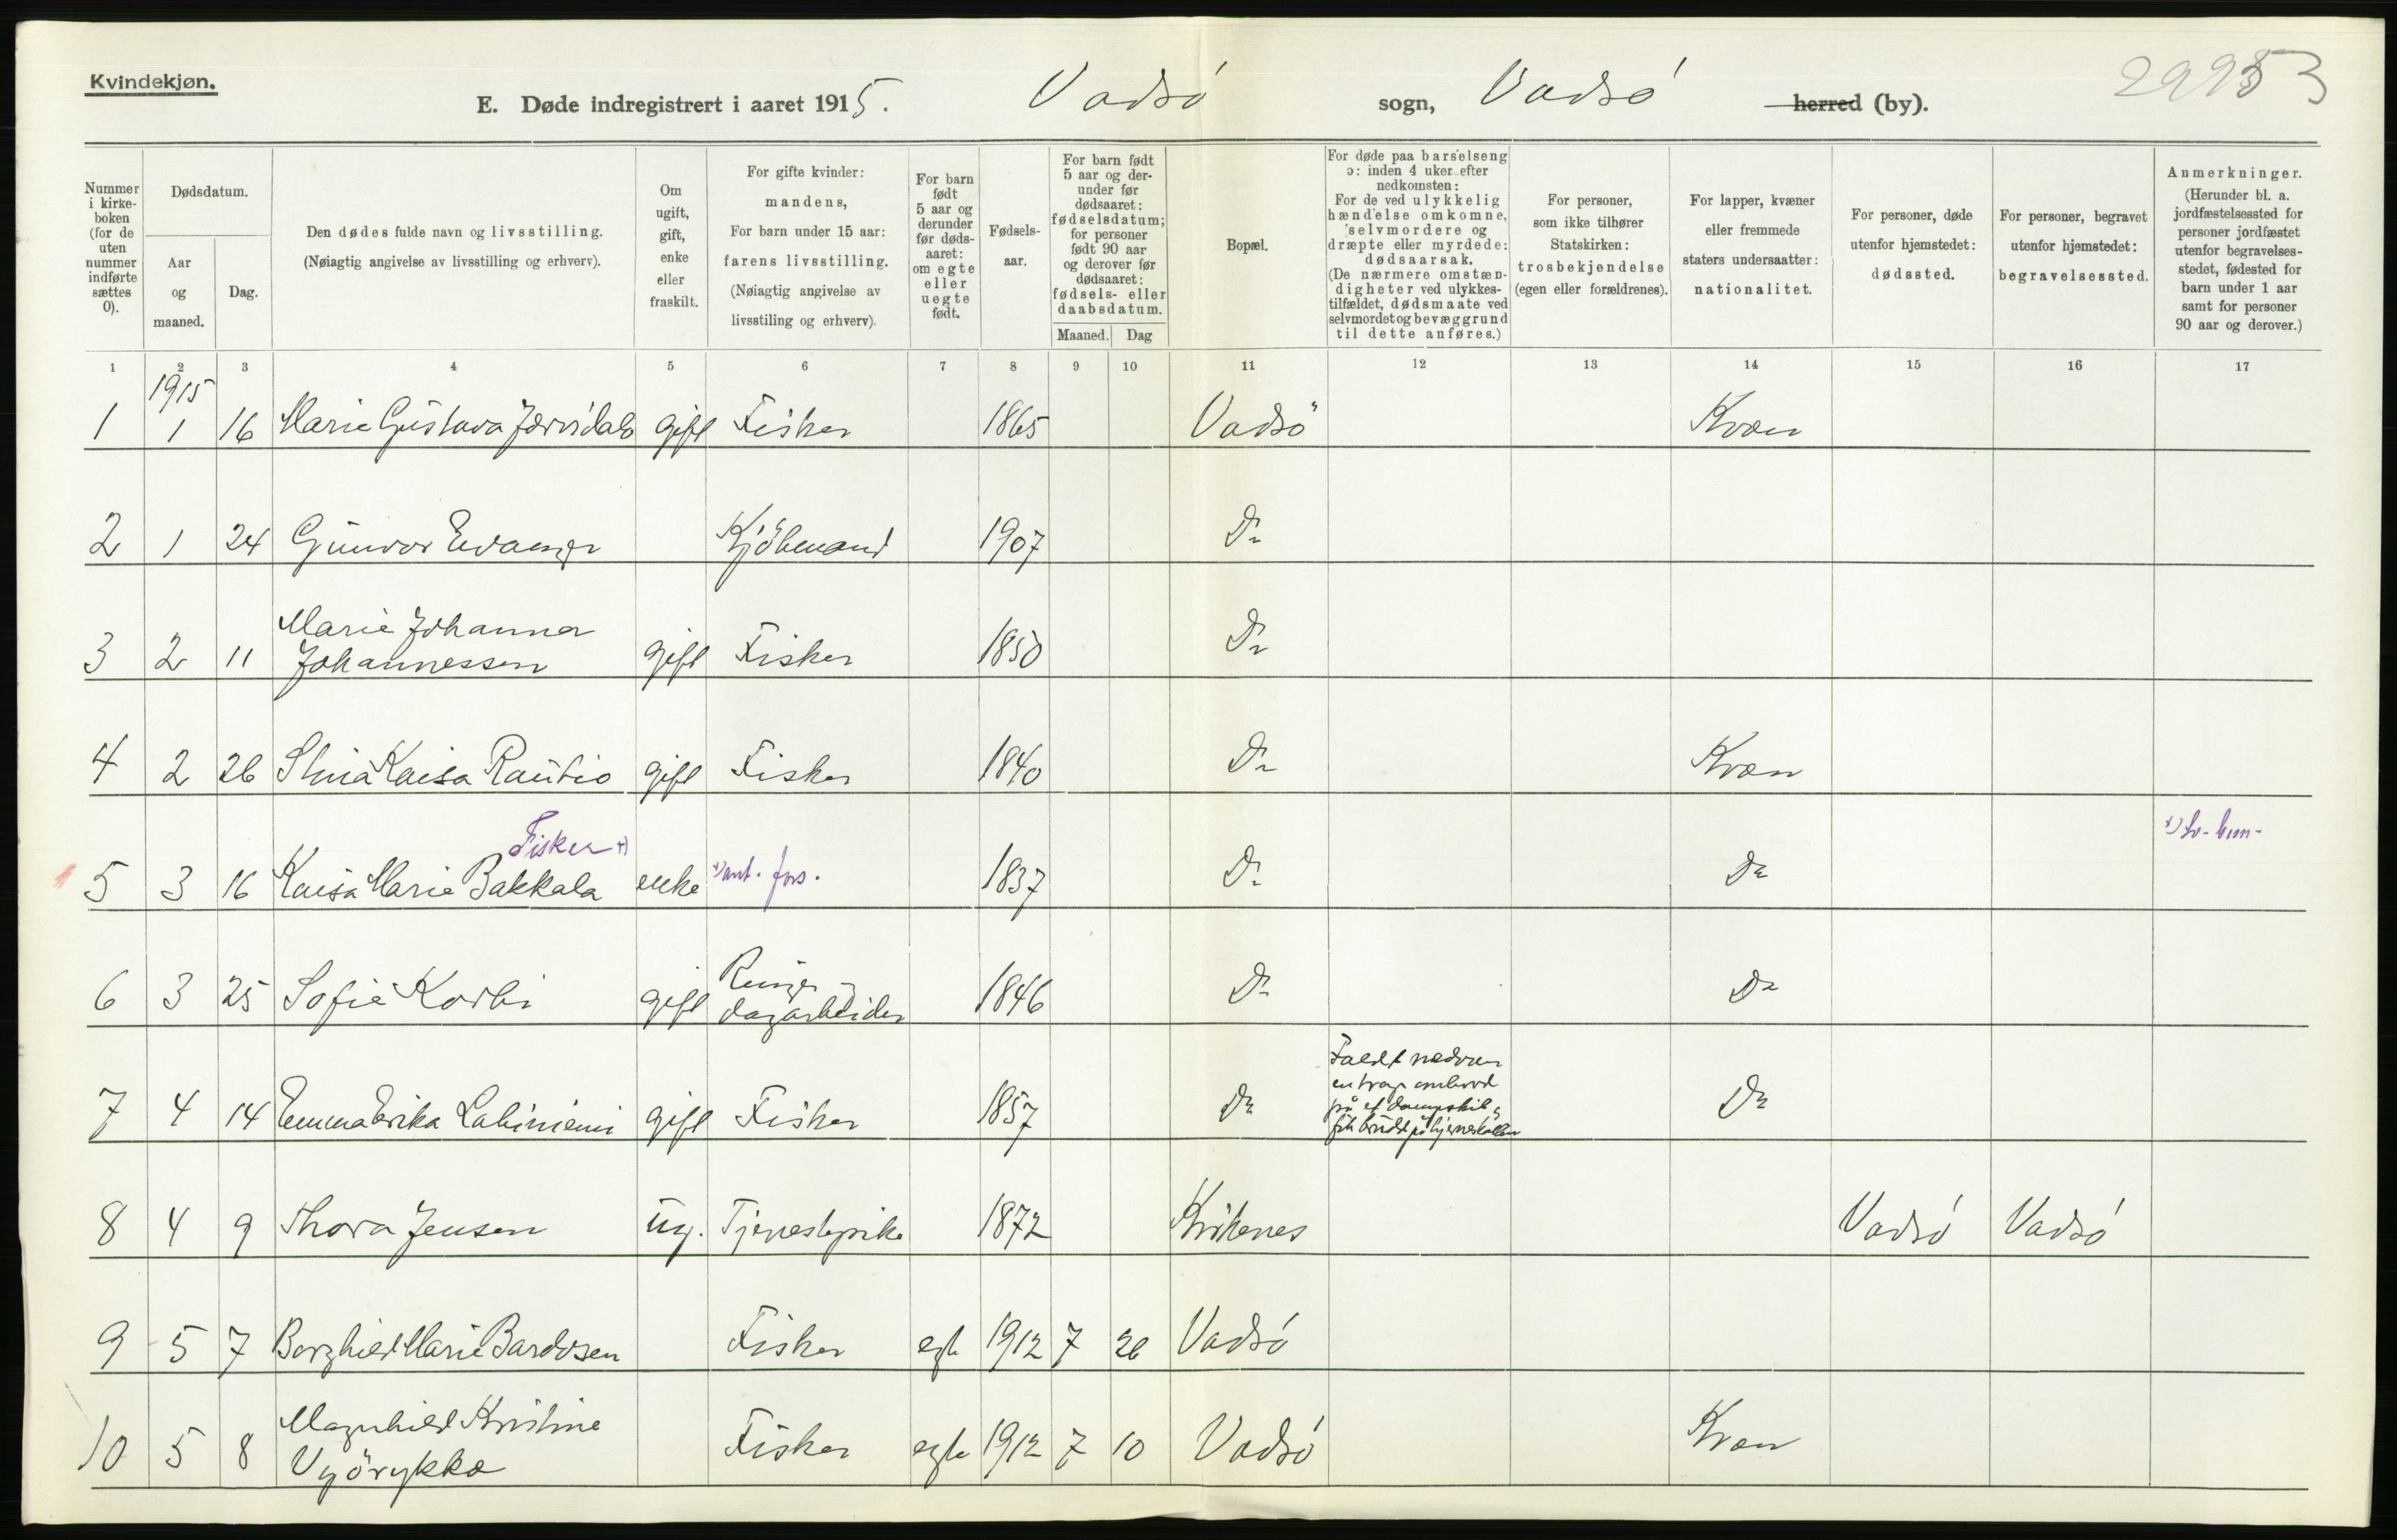 Kvindekjøn.
29953
E. Døde indregistrert i aaret 1915. Vadsø sogn, Vadsø herred (by).
Nummer i kirkeboken (for de uten nummer indførte sættes 0).
Dødsdatum.
Aar og maaned.
Dag.
Den dødes fulde navn og livsstilling.
(Nøiagtig angivelse av livsstilling og erhverv).
Om ugift, gift, enke eller fraskilt.
For gifte kvinder: mandens, For barn under 15 aar: farens livsstilling. (Nøiagtig angivelse av livsstiling og erhverv).
For barn født 5 aar og derunder før dødsaaret: om egte eller uegte født.
Fødselsaar.
For barn født 5 aar og derunder før dødsaaret: fødselsdatum; for personer født 90 aar og derover før dødsaaret: fødsels- eller daabsdatum.
Maaned. Dag
Bopæl.
For døde paa barselseng ɔ: inden 4 uker efter nedkomsten: For de ved ulykkelig hændelse omkomne, selvmordere og dræpte eller myrdede: dødsaarsak. (De nærmere omstændigheter ved ulykkestilfældet, dødsmaate ved selvmordet og bevæggrund til dette anføres.)
For personer, som ikke tilhører Statskirken: trosbekjendelse (egen eller forældrenes).
For lapper, kvæner eller fremmede staters undersaatter: nationalitet.
For personer, døde utenfor hjemstedet: dødssted.
For personer, begravet utenfor hjemstedet: begravelsessted.
Anmerkninger. (Herunder bl. a. jordfæstelsessted for personer jordfæstet utenfor begravelsesstedet, fødested for barn under 1 aar samt for personer 90 aar og derover.)
1 2 3 4 5 6 7 8 9 10 11 12 13 14 15 16 17
1915
1 1 16 Marie Gustava gift Fisker 1865 Vadsö Kvæn
2 1 24 Gunvor Evanger Kjöbmand 1907 Do
3 2 11 Marie Johanna Johannessen gift Fisker 1850 Do
4 2 26 Stina Kaisa Rautio gift Fisker 1840 Do Kvæn
Fisker +)
5 3 16 Kaisa Marie Bakkala enke +) unt. fors. 1837 Do Do
6 3 25 Sofie Korbi gift Ringer dagarbeider 1846 Do Do
7 4 14 Emma Erika Lahiniemi gift Fisker 1857 Do Faldt nedover en trap ombord på et dampskib, fik brudt på hjerneskallen Do
8 4 9 Thora Jensen ug. Tjenestepike 1872 Kirkenes Vadsø Vadsø
9 5 7 Borghild Marie Bardosen Fisker egte 1912 7 26 Vadsø
10 5 8 Magnhild Kristine Vyörykkä Fisker egte 1912 7 10 Vadsø Kvæn